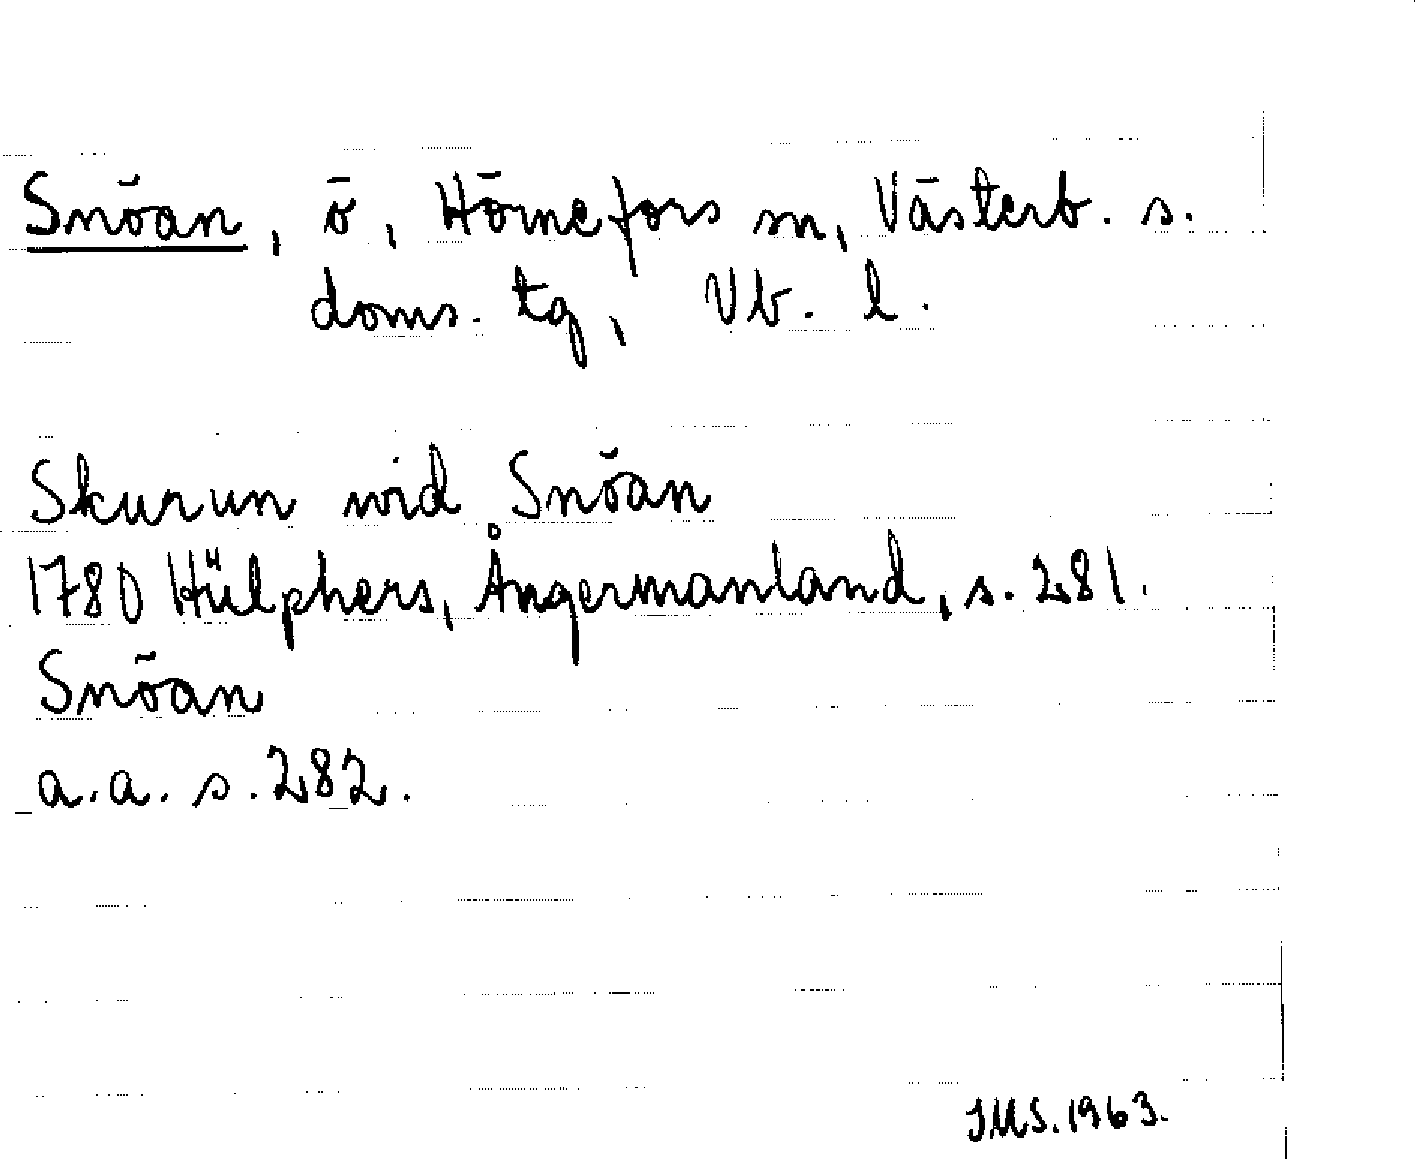 Snöan, ö, Hörnefors sn, Västerb. s.
doms. tg, Vb. l.
Skurun wid Snöan
1780 Hülphers, Ångermanland, s. 281.
Snöan
a.a. s. 282.
IMS. 1963.